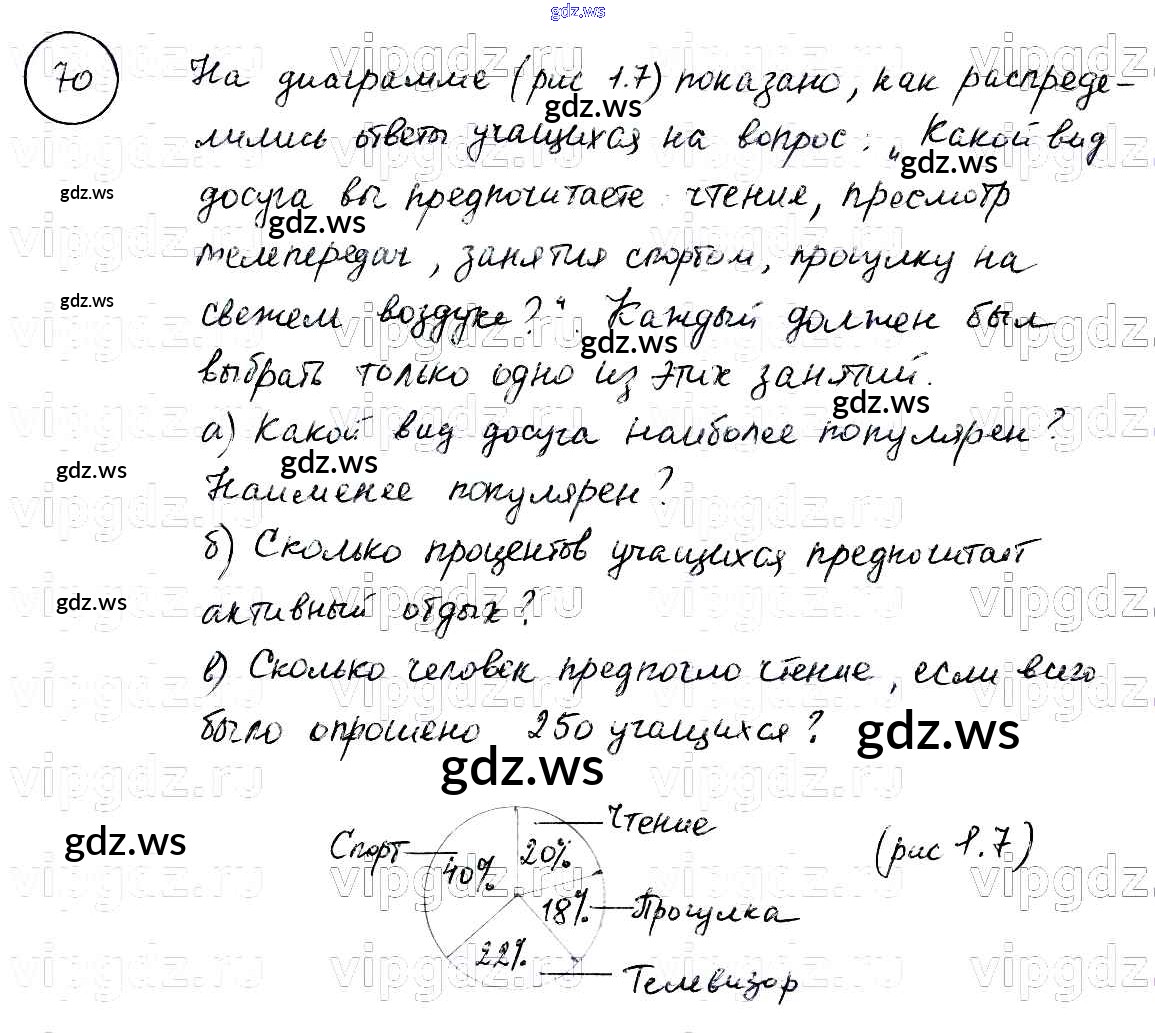 gdz.ws
70
На диаграмме (рис 1.7) показано, как распреде-
лились ответы учащихся на вопрос: „Какой вид
досуга вы предпочитаете чтение, просмотр
телепередач, занятия спортом, прогулку на
свежем воздухе?". Каждый должен был
выбрать только одно из этих занятий.
а) Какой вид досуга наиболее популярен?
Наименее популярен?
б) Сколько процентов учащихся предпочитает
активный отдых?
в) Сколько человек предпочло чтение, если всего
было опрошено 250 учащихся?
Чтение
Спорт
20%
40%
(рис 1.7)
18%
Прогулка
22%
Телевизор